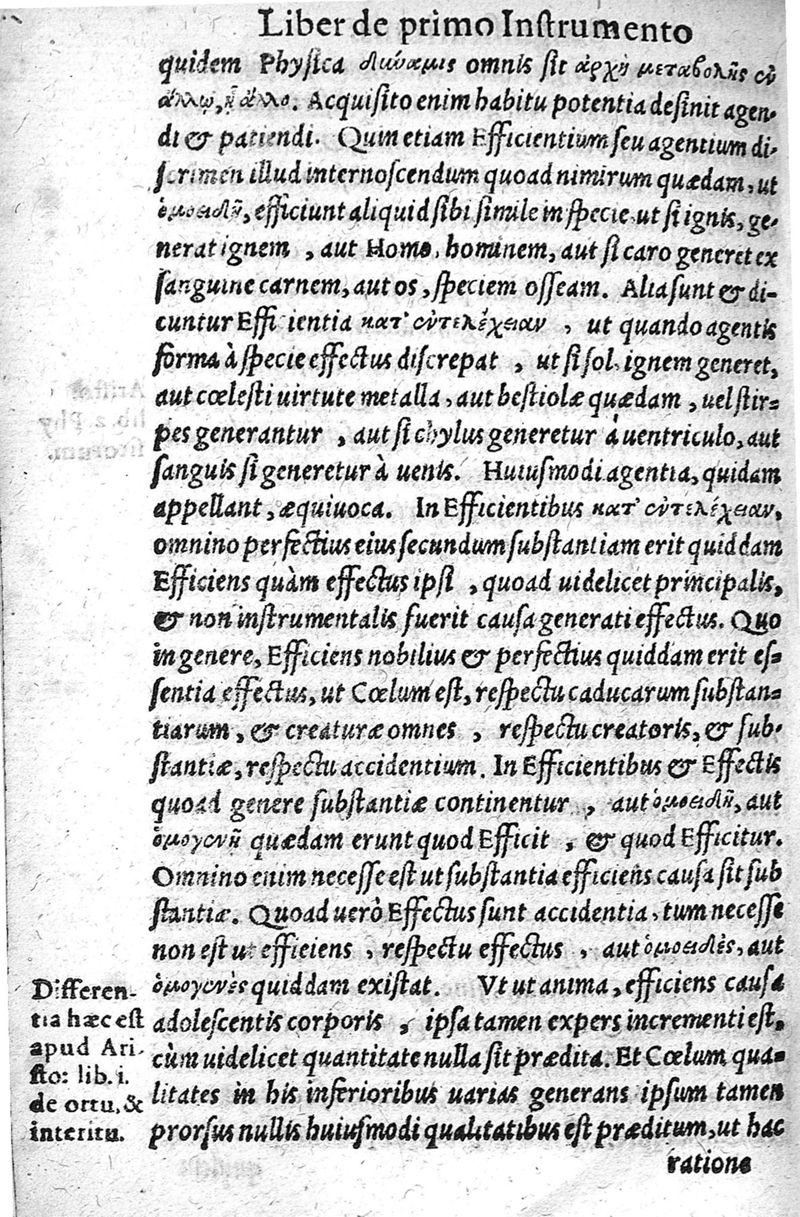 Liber de primo Inſtrumento
quidem Phyſica δύναμις omnis ſit ἀρχὴ μεταβολῆς ἐν
ἄλλῳ, ᾗ ἄλλο. Acquiſito enim habitu potentia deſinit agen-
di & patiendi. Quin etiam Efficientium ſeu agentium di-
ſcrimen illud internoſcendum quoad nimirum quædam, ut
ὁμοειδῆ, efficiunt aliquid ſibi ſimile in ſpecie, ut ſi ignis, ge-
nerat ignem , aut Homo, hominem, aut ſi caro generet ex
ſanguine carnem, aut os, ſpeciem oſſeam. Alia ſunt & di-
cuntur Efficientia κατ' ἐντελέχειαν , ut quando agentis
forma à ſpecie effectus diſcrepat , ut ſi ſol, ignem generet,
aut cœleſti uirtute metalla, aut beſtiolæ quædam, uel ſtir-
pes generantur , aut ſi chylus generetur à uentriculo, aut
ſanguis ſi generetur à uenis. Huiuſmodi agentia, quidam
appellant, æquiuoca. In Efficientibus κατ' ἐντελέχειαν,
omnino perfectius eius ſecundum ſubſtantiam erit quiddam
Efficiens quàm effectus ipſi , quoad uidelicet principalis,
& non inſtrumentalis fuerit cauſa generati effectus. Quo
in genere, Efficiens nobilius & perfectius quiddam erit eſ-
ſentia effectus, ut Cœlum eſt, reſpectu caducarum ſubſtan-
tiarum, & creaturæ omnes , reſpectu creatoris, & ſub-
ſtantiæ, reſpectu accidentium. In Efficientibus & Effectis
quoad genere ſubſtantiæ continentur , aut ὁμοειδῆ, aut
ὁμογενῆ quædam erunt quod Efficit , & quod Efficitur.
Omnino enim neceſſe eſt ut ſubſtantia efficiens cauſa ſit ſub
ſtantiæ. Quoad uerò Effectus ſunt accidentia, tum neceſſe
non eſt ut effieiens , reſpectu effectus , aut ὁμοειδὲς, aut
ὁμογενὲς quiddam exiſtat. Vt ut anima, efficiens cauſa
adoleſcentis corporis , ipſa tamen expers incrementi eſt,
cùm uidelicet quantitate nulla ſit prædita. Et Cœlum qua-
litates in his inferioribus uarias generans ipſum tamen
prorſus nullis huiuſmodi qualitatibus eſt præditum, ut hac
ratione
Differen-
tia hæc eſt
apud Ari-
ſto: lib. i.
de ortu, &
interitu.